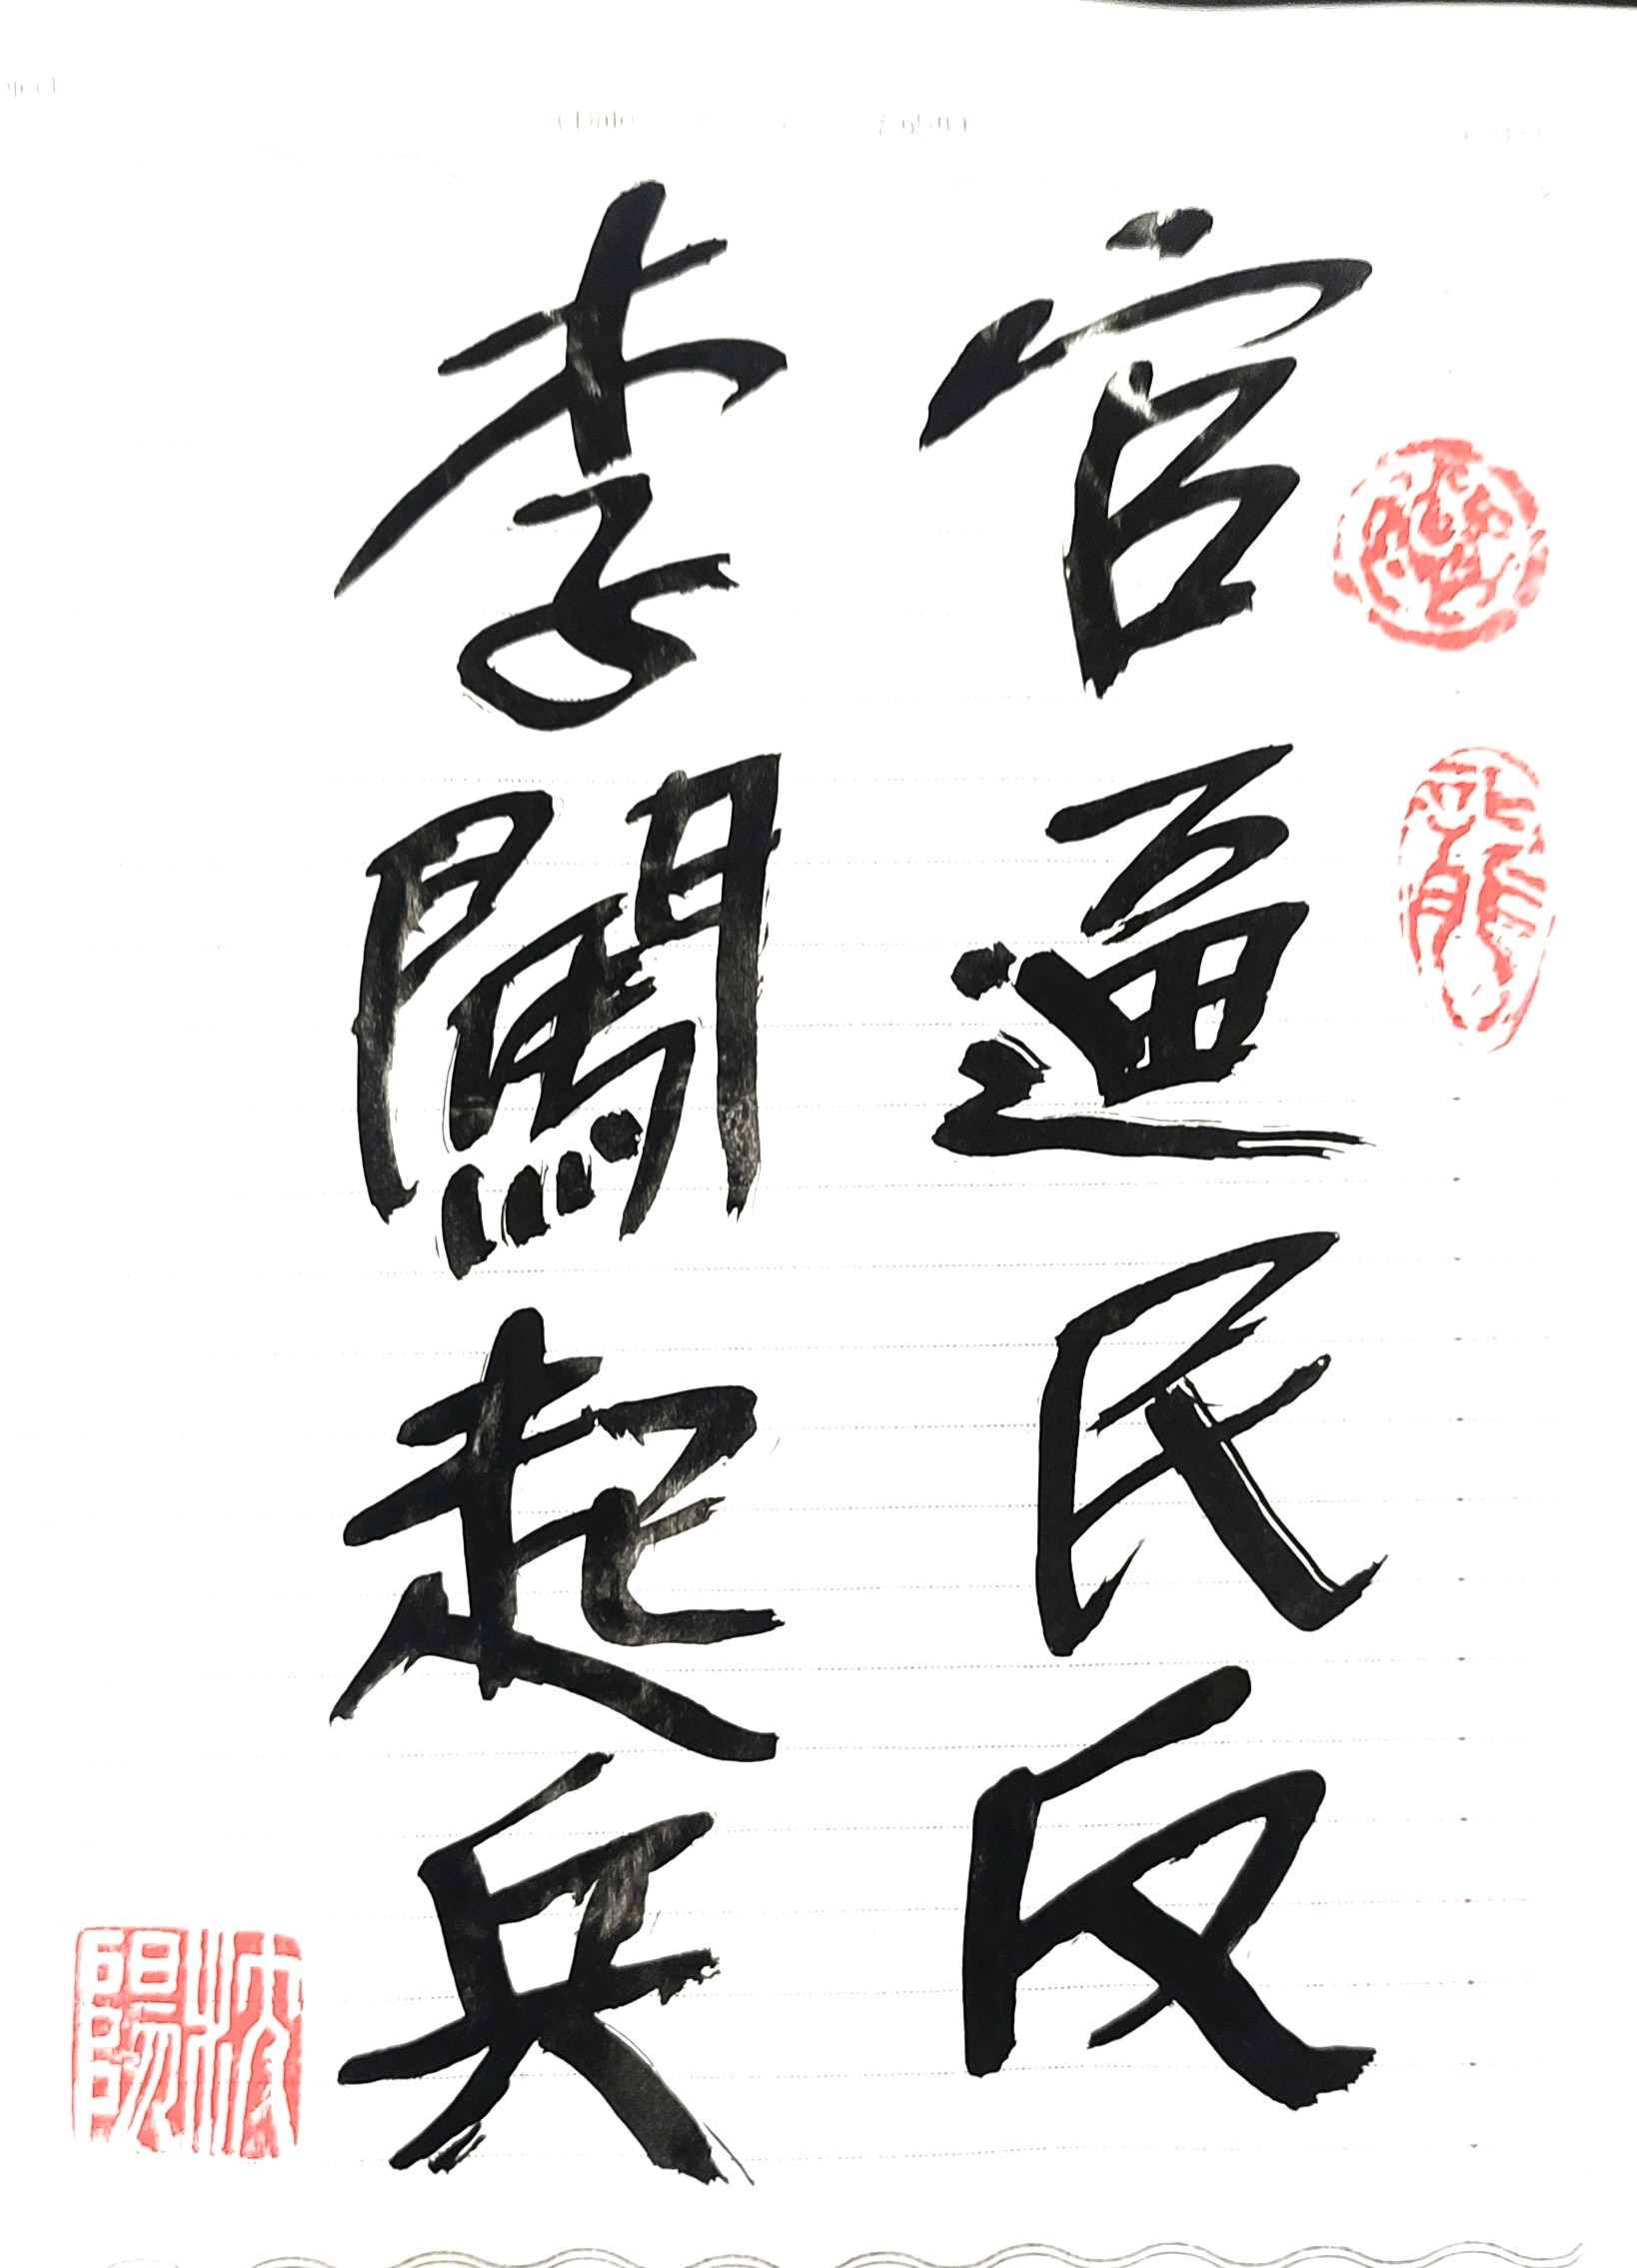 官逼民反
李闖起兵